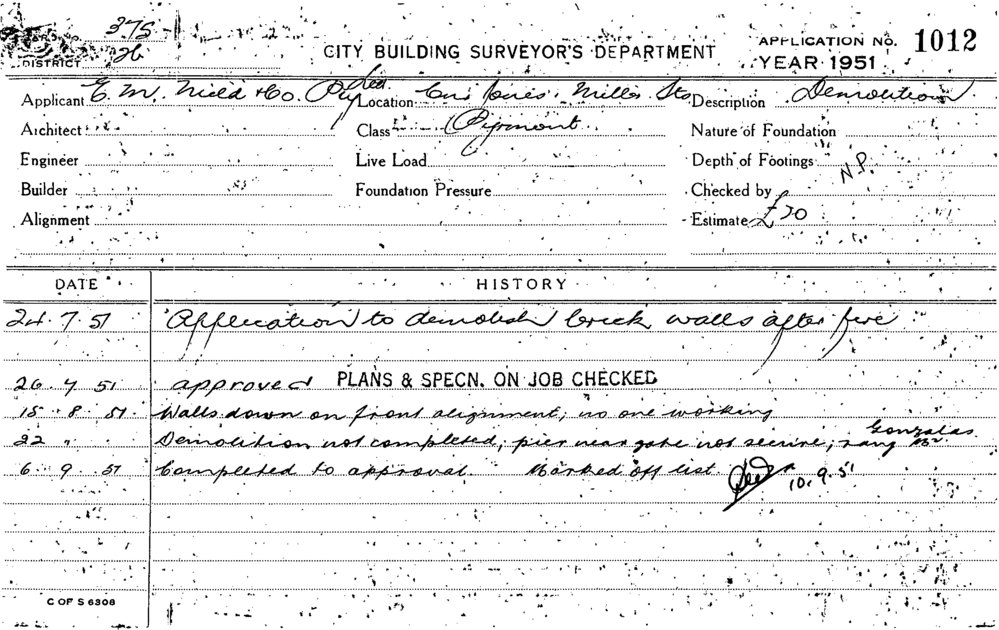 375
26
DISTRICT
CITY BUILDING SURVEYOR'S DEPARTMENT
APPLICATION No. 1012
YEAR 1951
Applicant E. M. Nield & Co. Pty Ltd. Location Cnr Jones. Miller Sts Description Demolition
Architect Class Pyrmont Nature of Foundation
Engineer Live Load Depth of Footings N.P.
Builder Foundation Pressure Checked by
Alignment Estimate £20
DATE HISTORY
24.7.51 Application to demolish brick walls after fire
26.7.51 approved PLANS & SPECN. ON JOB CHECKED
15.8.51. Walls down on front alignment; no one working
22 " Demolition not completed, pier near gate not secure; rang Mr Gonzalas
6.9.51 Completed to approval. Marked off list 10.9.51
C OF S 6308